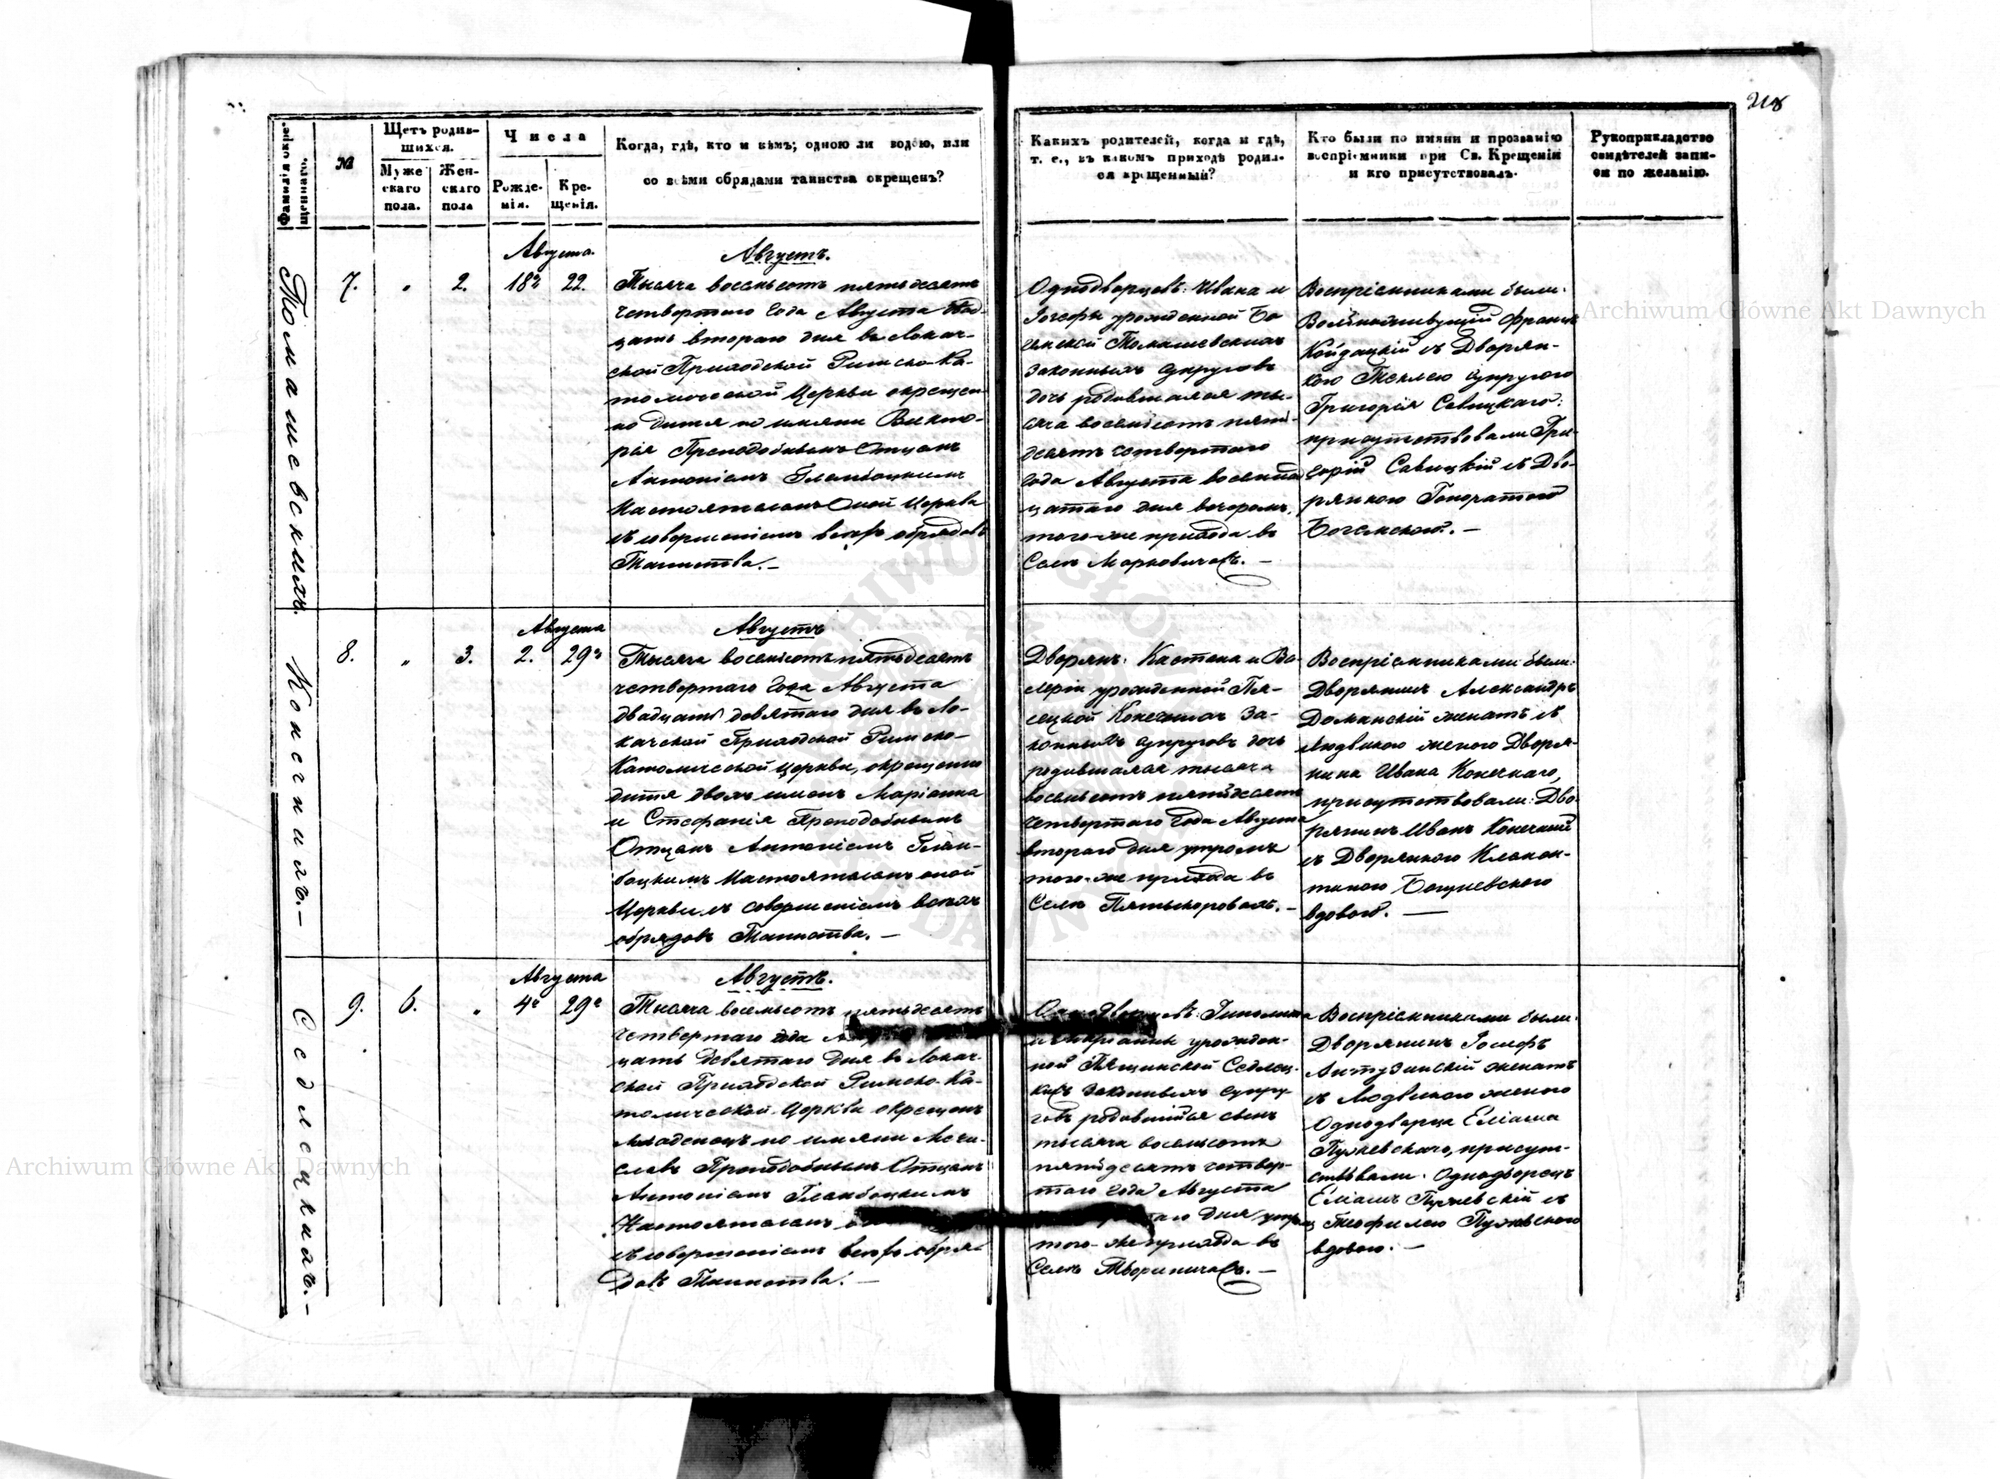 218
Фамилія окре-
щеннаго.
№
Щетъ родив-
шихся.
Муже
скаго
пола.
Жен-
скаго
пола
Числа
Рожде-
нія.
Кре-
щенія.
Когда, гдѣ, кто и кѣмъ; одною ли водою, или
со всѣми обрядами таинства окрещенъ?
Какихъ родителей, когда и гдѣ,
т. е., въ какомъ приходѣ родил-
ся крещенный?
Кто были по имяни и прозванію
воспріемники при Св. Крещеніи
и кто присутствовалъ.
Рукоприкладство
свидѣтелей запи-
си по желанію.
Томашевскихъ.
7.
"
2.
Августа.
18го
22.
Августъ.
Тысяча восемьсотъ пятьдесятъ
четвертаго года Августа двад-
цать втораго дня въ Локач-
ской Приходской Римско-Ка-
толической Церкви окрещен-
но дитя по имяни Викто-
рія Преподобнымъ Отцомъ
Антоніемъ Гламбоцкимъ
Настоятелемъ Оной Церкви
съ совершеніемъ всѣхъ обрядовъ
Таинства. —
Однодворцевъ: Ивана и
Іозефы урожденной Бо-
гемской Томашевскихъ
законныхъ супруговъ
дочь родившаяся ты-
сяча восемьсотъ пять-
десятъ четвертаго
года Августа восемнад
цатаго дня вечеромъ,
того-же прихода въ
Селѣ Марковичахъ. —
Воспріемниками были:
Францъ
Койдацкій съ Дворян-
кою Теклею супругою
Григорія Савицкаго:
присутствовали Гри-
горій Савицкій съ Дво-
рянкою Гоноратою
Богемскою. —
Конечнихъ. —
8.
"
3.
Августа
2.
29го
Августъ
Тысяча восемьсотъ пятьдесятъ
четвертаго года Августа
двадцать девятаго дня въ Ло-
качской Приходской Римско-
Католической Церкви, окрещенно
дитя двохъ именъ Маріанна
и Стефанія Преподобнымъ
Отцомъ Антоніемъ Глам-
боцкимъ Настоятелемъ оной
Церкви съ совершеніемъ всѣхъ
обрядовъ Таинства. —
Дворянъ: Каетана и Ва-
леріи урожденной Пя-
сецкой Конечнихъ За-
конныхъ супруговъ дочь
родившаяся тысяча
восемьсотъ пятьдесятъ
четвертаго года Августа
втораго дня утромъ
того-же прихода въ
Селѣ Пятыкоровахъ. —
Воспріемниками были:
Дворянинъ Александръ
Доманскій женатъ съ
Людвикою женою Дворя-
нина Ивана Конечнаго,
присутствовали: Дво-
рянинъ Иванъ Конечній
съ Дворянкою Клемен-
тиною
вдовою. —
Седлецкихъ. —
9.
6.
"
Августа
4е
29е
Августъ.
Тысяча восемьсотъ пятьдесятъ
четвертаго года
цать девятаго дня въ Локач-
ской Приходской Римско-Ка-
толической Церкви окрещенъ
младенецъ по имяни Мечи-
славъ Преподобнымъ Отцомъ
Антоніемъ Гламбоцкимъ
Настоятелемъ
съ совершеніемъ всѣхъ обря-
довъ Таинства. —
Однодворцевъ: Гиполита
и Маріанны урожден-
ной Седлец-
кихъ законныхъ супру-
говъ родившійся сынъ
тысяча восемьсотъ
пятьдесятъ четвер-
таго года Августа
дня утромъ
того-же прихода въ
Селѣ Творыничахъ. —
Воспріемниками были:
Дворянинъ Іосифъ
женатъ
съ Людвикою женою
Однодворца Еліаша
Пужевскаго, присут-
ствовали: Однодворецъ
Еліашъ Пужевскій съ
Теофилею Пужевскою
вдовою. —
Archiwum Główne Akt Dawnych
Archiwum Główne Akt Dawnych